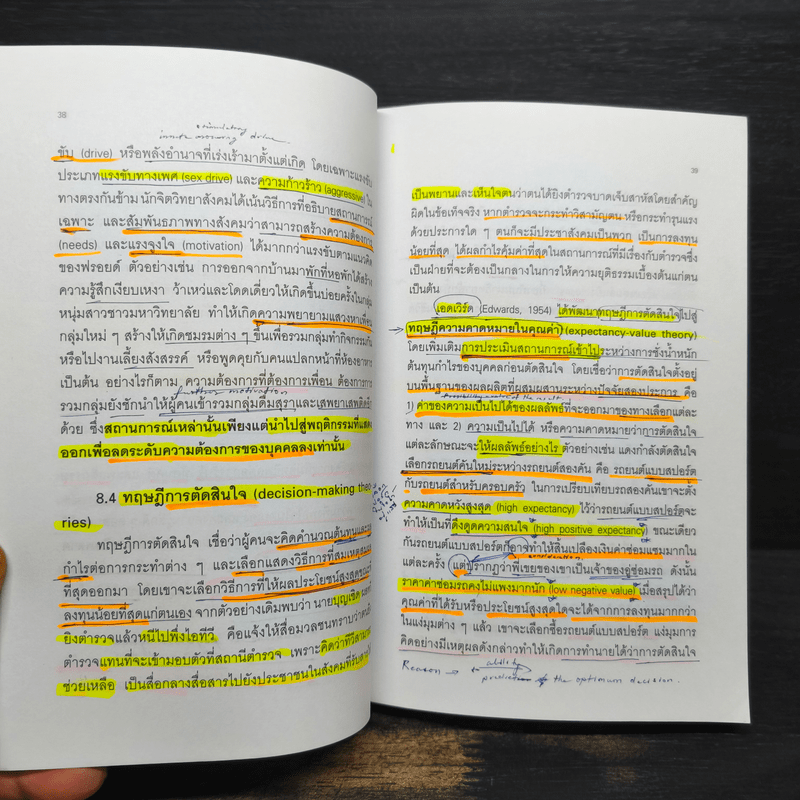 38
innate arousing drive
ขับ (drive) หรือพลังอำนาจที่เร่งเร้ามาตั้งแต่เกิด โดยเฉพาะแรงขับ
ประเภทแรงขับทางเพศ (sex drive) และความก้าวร้าว (aggressive)
ทางตรงกันข้าม นักจิตวิทยาสังคมได้เน้นวิธีการที่อธิบายสถานการณ์
เฉพาะ และสัมพันธภาพทางสังคมว่าสามารถสร้างความต้องการ
(needs) และแรงจูงใจ (motivation) ได้มากกว่าแรงขับตามแนวคิด
ของฟรอยด์ ตัวอย่างเช่น การออกจากบ้านมาพักที่หอพักได้สร้าง
ความรู้สึกเงียบเหงา ว้าเหว่และโดดเดี่ยวให้เกิดขึ้นบ่อยครั้งในกลุ่ม
หนุ่มสาวชาวมหาวิทยาลัย ทำให้เกิดความพยายามแสวงหาเพื่อน
กลุ่มใหม่ ๆ สร้างให้เกิดชมรมต่าง ๆ ขึ้นเพื่อรวมกลุ่มทำกิจกรรม
หรือไปงานเลี้ยงสังสรรค์ หรือพูดคุยกับคนแปลกหน้าที่ห้องอาหาร
เป็นต้น อย่างไรก็ตาม ความต้องการที่ต้องการเพื่อน ต้องการการ
รวมกลุ่มยังชักนำให้ผู้คนเข้ารวมกลุ่มดื่มสุราและเสพยาเสพติด
ด้วย ซึ่งสถานการณ์เหล่านั้นเพียงแต่นำไปสู่พฤติกรรมที่แสดง
ออกเพื่อลดระดับความต้องการของบุคคลลงเท่านั้น
8.4 ทฤษฎีการตัดสินใจ (decision-making theo-
ries)
ทฤษฎีการตัดสินใจ เชื่อว่าผู้คนจะคิดคำนวณต้นทุนและผล
กำไรต่อการกระทำต่าง ๆ และเลือกแสดงวิธีการที่สมเหตุสมผล
ที่สุดออกมา โดยเขาจะเลือกวิธีการที่ให้ผลประโยชน์สูงสุด
ลงทุนน้อยที่สุดแก่ตนเอง จากตัวอย่างเดิมพบว่า นายบุญเชิด
ยิงตำรวจแล้วหนีไปพึ่งไอทีวี คือแจ้งให้สื่อมวลชนทราบว่าตน
ตำรวจแทนที่จะเข้ามอบตัวที่สถานีตำรวจ เพราะคิดว่าทีวีสามารถ
ช่วยเหลือ เป็นสื่อกลางสื่อสารไปยังประชาชนในสังคมที่รับ
39
เป็นพยานและเห็นใจตนว่าตนได้ยิงตำรวจบาดเจ็บสาหัสโดยสำคัญ
ผิดในข้อเท็จจริง หากตำรวจจะกระทำวิสามัญตน หรือกระทำรุนแรง
ด้วยประการใด ๆ ตนก็จะมีประชาสังคมเป็นพวก เป็นการลงทุน
น้อยที่สุด ได้ผลกำไรคุ้มค่าที่สุดในสถานการณ์ที่มีเรื่องกับตำรวจซึ่ง
เป็นฝ่ายที่จะต้องเป็นกลางในการให้ความยุติธรรมเบื้องต้นแก่ตน
เป็นต้น
เอดเวิร์ด (Edwards, 1954) ได้พัฒนาทฤษฎีการตัดสินใจไปสู่
ทฤษฎีความคาดหมายในคุณค่า (expectancy-value theory)
โดยเพิ่มเติมการประเมินสถานการณ์เข้าไประหว่างการชั่งน้ำหนัก
ต้นทุนกำไรของบุคคลก่อนตัดสินใจ โดยเชื่อว่าการตัดสินใจตั้งอยู่
บนพื้นฐานของผลผลิตที่ผสมผสานระหว่างปัจจัยสองประการ คือ
1) ค่าของความเป็นไปได้ของผลลัพธ์ที่จะออกมาของทางเลือกแต่ละ
ทาง และ 2) ความเป็นไปได้ หรือความคาดหมายว่าการตัดสินใจ
แต่ละลักษณะจะให้ผลลัพธ์อย่างไร ตัวอย่างเช่น แดงกำลังตัดสินใจ
เลือกรถยนต์คันใหม่ระหว่างรถยนต์สองคัน คือ รถยนต์แบบสปอร์ต
กับรถยนต์สำหรับครอบครัว ในการเปรียบเทียบรถสองคันเขาจะตั้ง
ความคาดหวังสูงสุด (high expectancy) ไว้ว่ารถยนต์แบบสปอร์ตจะ
ทำให้เป็นที่ดึงดูดความสนใจ (high positive expectancy) ขณะเดียว
กันรถยนต์แบบสปอร์ตก็อาจทำให้สิ้นเปลืองเงินค่าซ่อมแซมมากใน
แต่ละครั้ง แต่ปรากฏว่าพี่เขยของเขาเป็นเจ้าของอู่ซ่อมรถ ดังนั้น
ราคาค่าซ่อมรถคงไม่แพงมากนัก (low negative value) เมื่อสรุปได้ว่า
คุณค่าที่ได้รับหรือประโยชน์สูงสุดใดจะได้จากการลงทุนมากกว่า
ในแง่มุมต่าง ๆ แล้ว เขาจะเลือกซื้อรถยนต์แบบสปอร์ต แง่มุมการ
คิดอย่างมีเหตุผลดังกล่าวทำให้เกิดการทำนายได้ว่าการตัดสินใจ
Reason → ability
prediction the optimum decision.